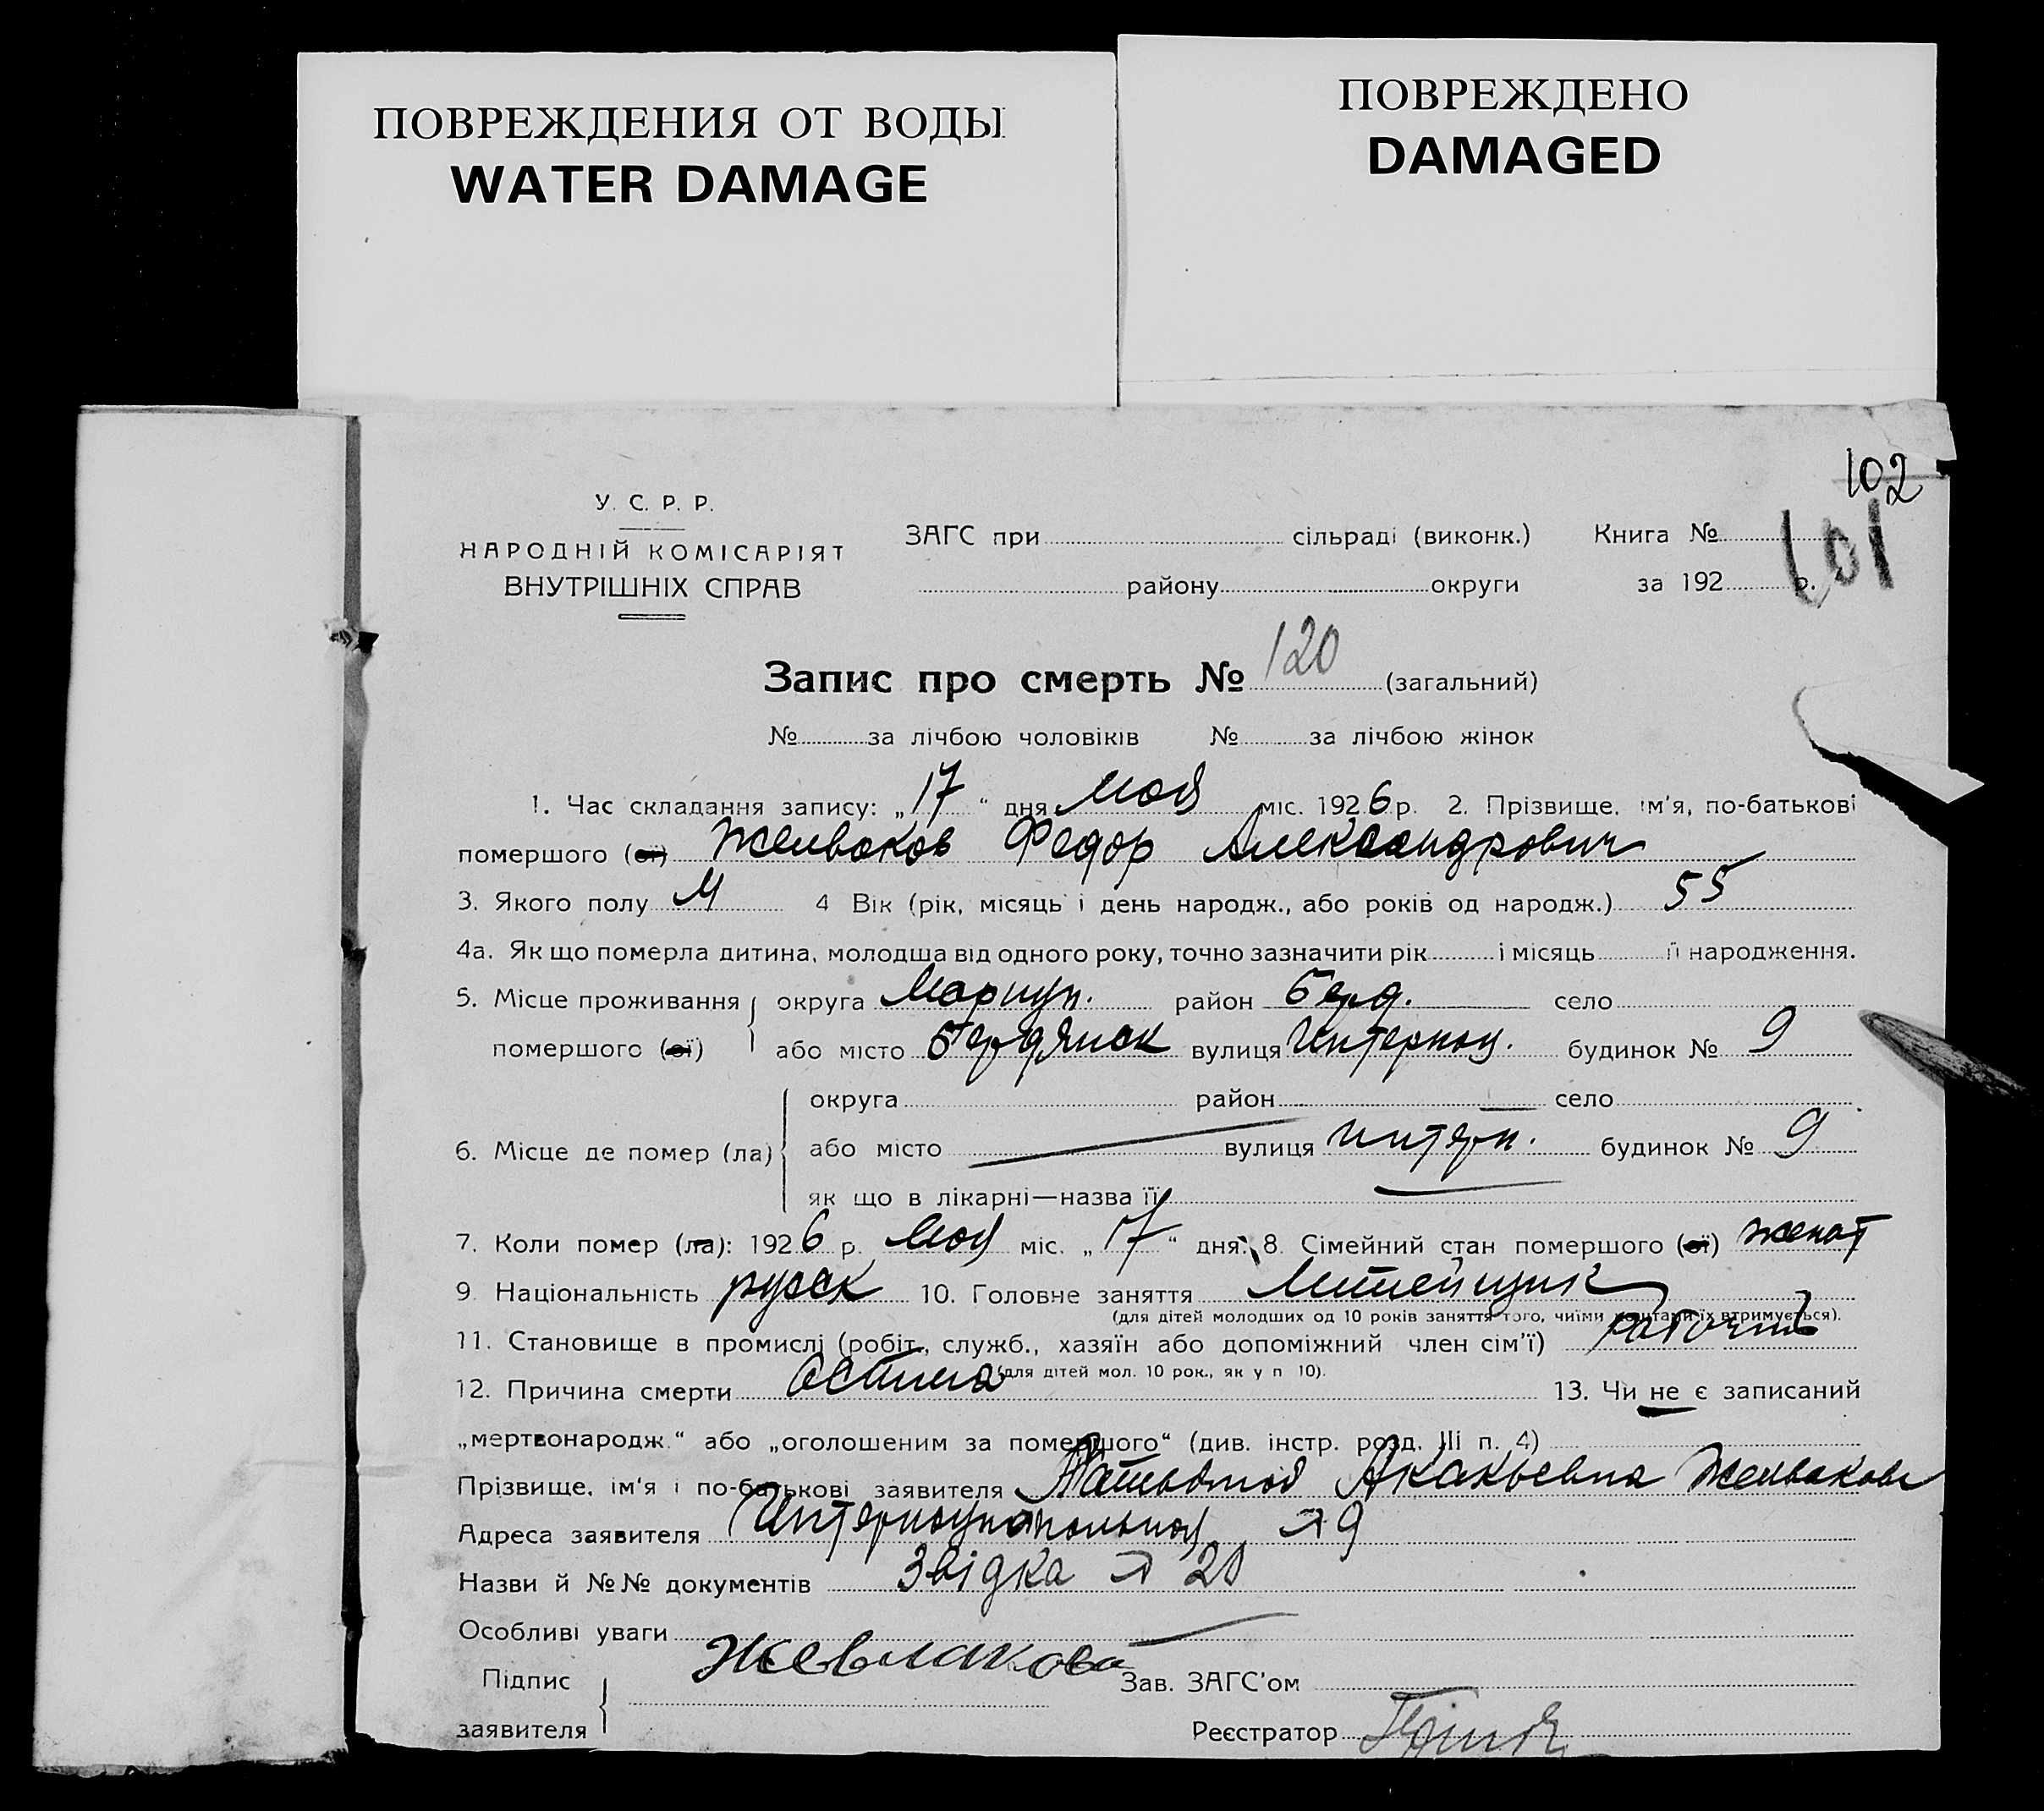 ПОВРЕЖДЕНИЯ ОТ ВОДЫ
WATER DAMAGE
ПОВРЕЖДЕНО
DAMAGED
102
101
У. С. Р. Р.
НАРОДНІЙ КОМІСАРІЯТ
ВНУТРІШНІХ СПРАВ
ЗАГС при сільраді (виконк.) Книга №
району округи за 192 р.
Запис про смерть № 120 (загальний)
№ за лічбою чоловіків № за лічбою жінок
1. Час складання запису: „17“ дня мая міс. 1926 р. 2. Прізвище, ім'я, по-батькові
помершого (ої) Желваков Федор Александрович
3. Якого полу М 4 Вік (рік, місяць і день народж., або років од народж.) 55
4а. Як що померла дитина, молодша від одного року, точно зазначити рік і місяць її народження.
5. Місце проживання округа Мариуп. район Берд. село
помершого (ої) або місто Бердянск вулиця Интернац. будинок № 9
округа район село
6. Місце де помер (ла) або місто вулиця Интерн. будинок № 9
як що в лікарні—назва її
7. Коли помер (ла): 1926 р. мая міс. „17“ дня. 8. Сімейний стан помершого (ої) женат
9. Національність русск 10. Головне заняття Литейщик
(для дітей молодших од 10 років заняття того, чиїми коштами їх втримується).
11. Становище в промислі (робіт., служб., хазяїн або допоміжний член сім'ї) рабочий
(для дітей мол. 10 рок., як у п 10).
12. Причина смерти астма 13. Чи не є записаний
„мертвонародж.“ або „оголошеним за помершого“ (див. інстр. розд. III п. 4)
Прізвище, ім'я і по-батькові заявителя Акакьевна Желвакова
Адреса заявителя Интернациональная № 9
Назви й №№ документів Звідка № 20
Особливі уваги
Підпис
заявителя
Жевлакова
Зав. ЗАГС'ом
Реєстратор